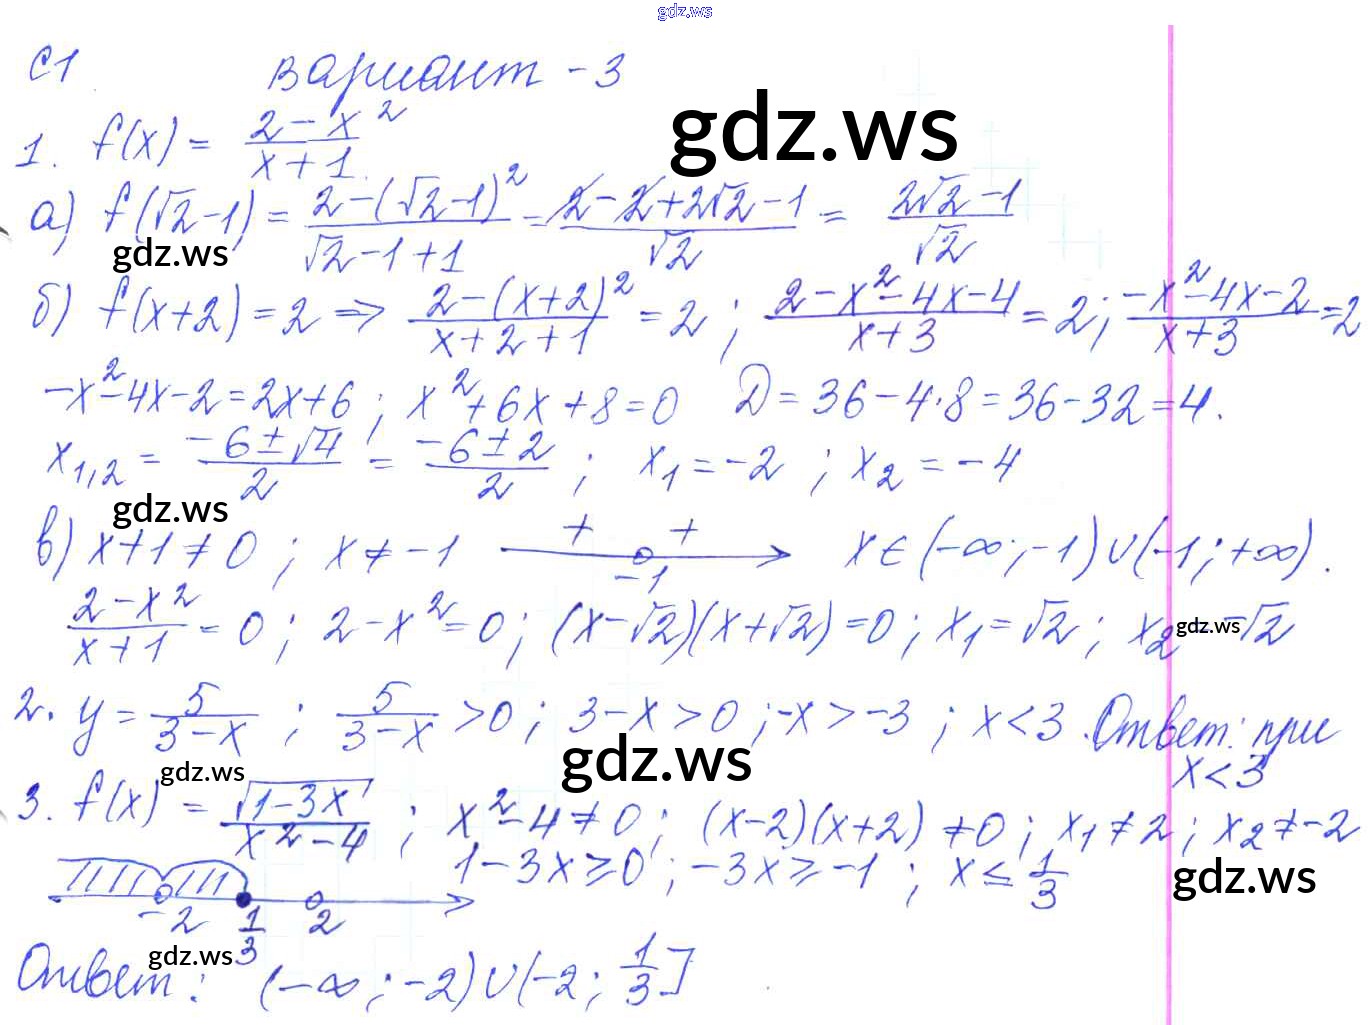 gdz.ws
С1 Вариант - 3
gdz.ws
1. f(x) = (2 - x²)/(x + 1)
а) f(√2-1) = (2-(√2-1)²)/(√2-1+1) = (2-2+2√2-1)/√2 = (2√2-1)/√2
gdz.ws
б) f(x+2) = 2 => (2-(x+2)²)/(x+2+1) = 2 ; (2-x²-4x-4)/(x+3) = 2 ; (-x²-4x-2)/(x+3) = 2
-x²-4x-2=2x+6 ; x²+6x+8=0 D = 36-4·8=36-32=4.
x1,2 = (-6±√4)/2 = (-6±2)/2 ; x1 = -2 ; x2 = -4
gdz.ws
в) x+1≠0 ; x≠-1 + + -1 x∈(-∞;-1)∪(-1;+∞).
(2-x²)/(x+1) = 0 ; 2-x²=0 ; (x-√2)(x+√2)=0 ; x1=√2 ; x2 = -√2
gdz.ws
2. y = 5/(3-x) ; 5/(3-x) >0 ; 3-x>0 ; -x>-3 ; x<3. Ответ: при
x<3
gdz.ws
gdz.ws
3. f(x) = √(1-3x)/(x²-4) ; x²-4≠0 ; (x-2)(x+2)≠0 ; x1≠2 ; x2≠-2
1-3x≥0 ; -3x≥-1 ; x≤1/3
gdz.ws
-2 1/3 2
gdz.ws
Ответ: (-∞;-2)∪(-2; 1/3]